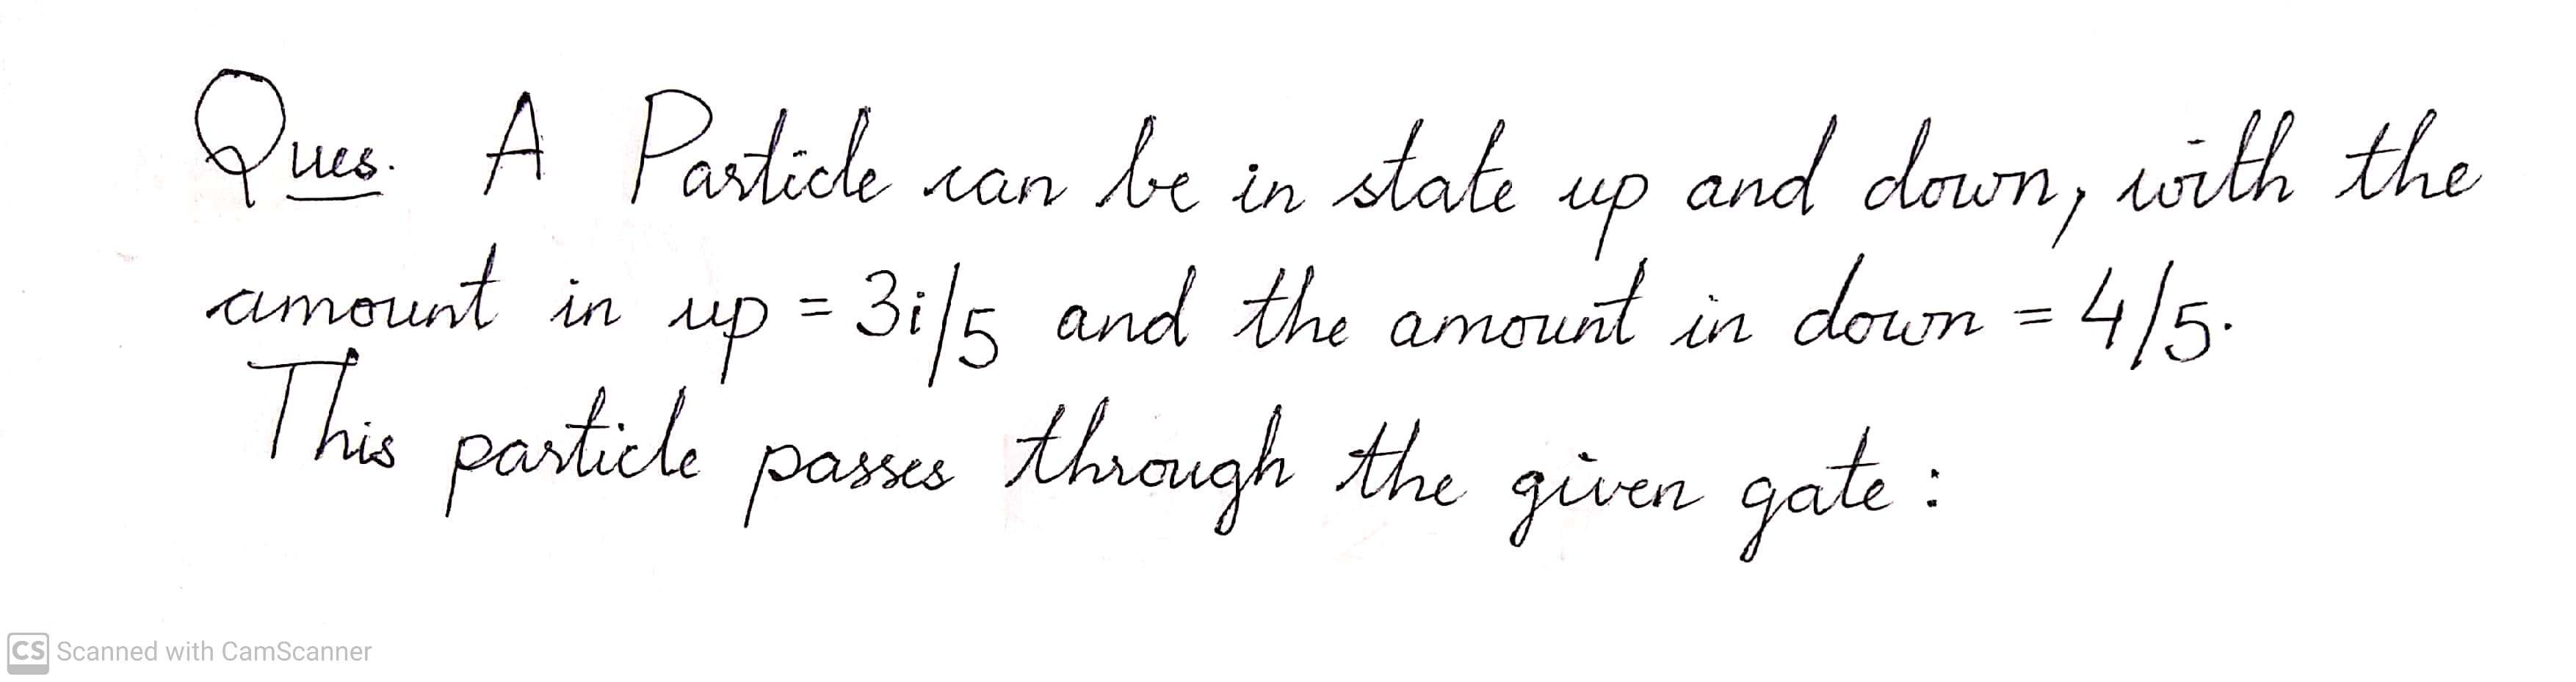 Ques. A Particle can be in state up and down, with the
amount in up = 3i/5 and the amount in down = 4/5.
This particle passes through the given gate :
CS Scanned with CamScanner